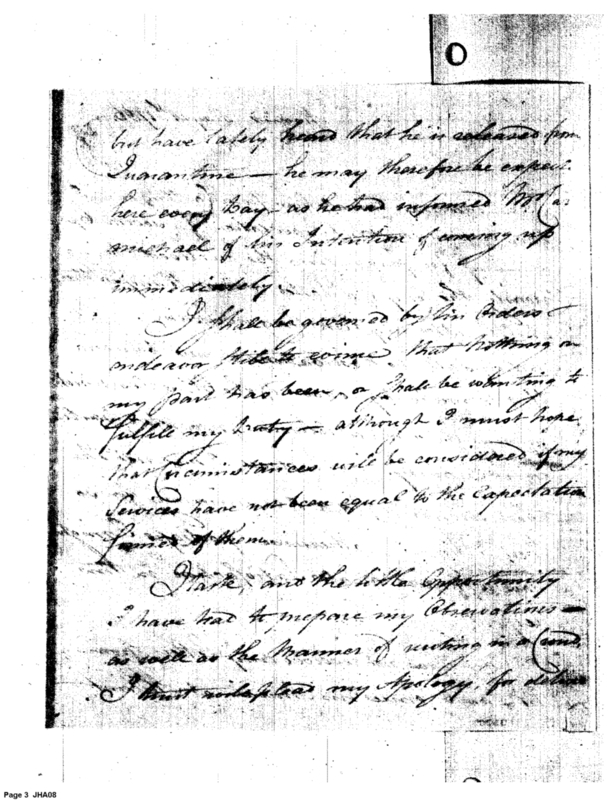 O
but have lately heard that he is released from
Quarantine — he may therefore be expect
here every Day — as he had informed Mr
michael of his Intention of coming up
immediately.
I shall be governed by his Orders &
endeavor still to evince that nothing on
my part has been, or shall be wanting to
fulfill my Duty — although I must hope
that Circumstances will be considered if my
Services have not been equal to the Expectation
formed of them.
Haste, and the little Opportunity
I have had to prepare my Observations —
as well as the Manner of writing in a
I trust will plead my Apology, for
Page 3 JHA08